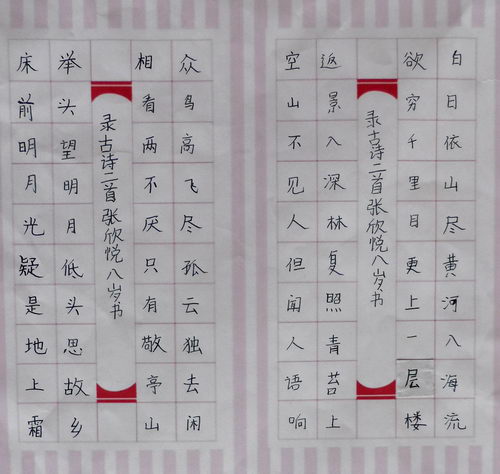 白日依山尽黄河入海流
欲穷千里目更上一层楼
录古诗二首张欣悦八岁书
空山不见人但闻人语响
返景入深林复照青苔上
众鸟高飞尽孤云独去闲
相看两不厌只有敬亭山
录古诗二首张欣悦八岁书
床前明月光疑是地上霜
举头望明月低头思故乡